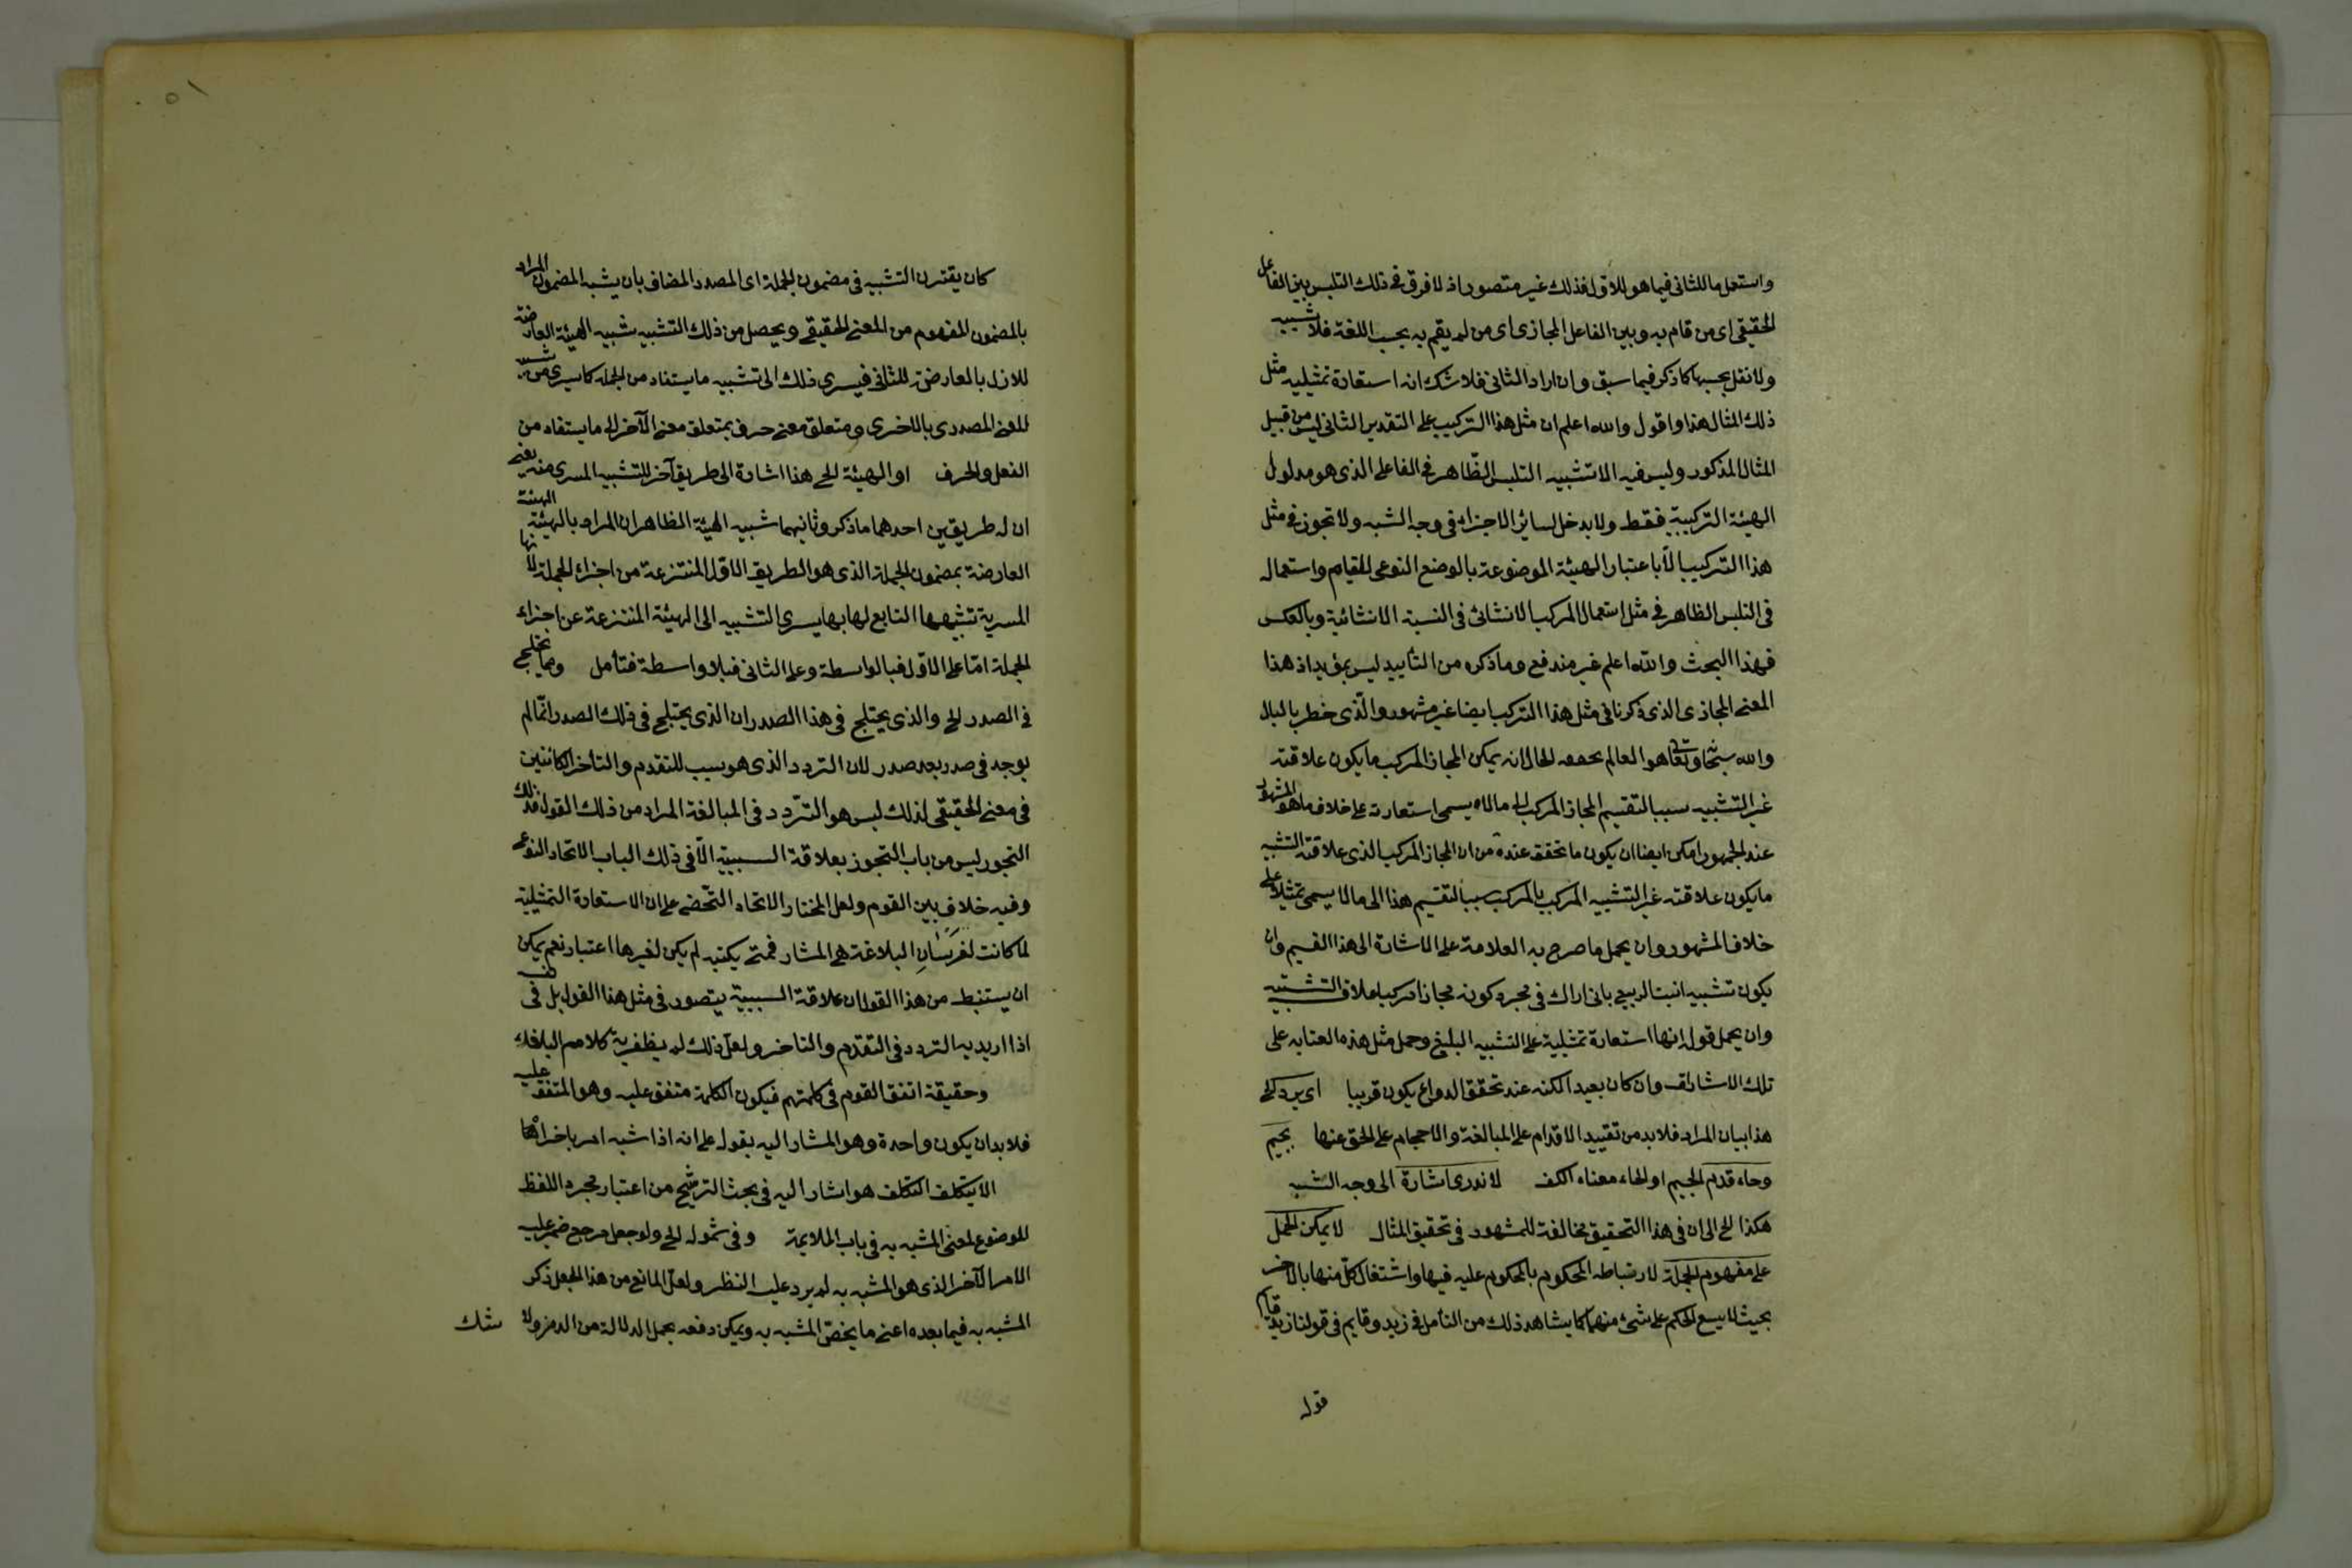 واستعمل ما للثاني فيما هو للاول فذلك غير متصور اذ لا فرق في ذلك التلبس بين الفاعل
الحقيقي اي من قام به وبين الفاعل المجازي اي من لم يقم به بحسب اللغة فلا تشبيه
ولا نقل بحسبها كما ذكر فيما سبق وان اراد الثاني فلا شك انه استعارة تمثيلية مثل
ذلك المثال هذا واقول والله اعلم ان مثل هذا التركيب على التقدير الثاني ليس من قبيل
المثال المذكور وليس فيه الا تشبيه التلبس الظاهر في الفاعل الذي هو مدلول
الهيئة التركيبية فقط ولا يدخل لسائر الاجزاء في وجه الشبه ولا تجوز في مثل
هذا التركيب الا باعتبار الهيئة الموضوعة بالوضع النوعي للقيام واستعماله
في التلبس الظاهر في مثل استعمال المركب الانشائي في النسبة الانشائية وبالعكس
فهذا البحث والله اعلم غير مندفع وما ذكره من التأييد ليس بمؤيد اذ هذا
المعنى المجازي الذي ذكرنا في مثل هذا التركيب ايضا غير مشهور والذي خطر بالبال
والله سبحانه وتعالى هو العالم الحال انه يمكن المجاز المركب ما يكون علاقته
غير التشبيه سببا لتقسيم المجاز المركب الى ما لا يسمى استعارة على خلاف ما هو المشهور
عند الجمهور امكن ايضا ان يكون ما تحقق عنده من ان المجاز المركب الذي علاقته التشبيه
ما يكون علاقته غير التشبيه المركب بالمركب سببا لتقسيم هذا الى ما لا يسمى تمثيلا على
خلاف المشهور وان يحمل ما صرح به العلامة على الاشارة الى هذا القسيم وان
يكون تشبيه انبت الربيع باني اراك في مجرد كونه مجازا مركبا علاقة التشبيه
وان يحمل قوله انها استعارة تمثيلية على التشبيه البليغ وحمل مثل هذه العناية على
تلك الاشارة وان كان بعيدا لكنه عند تحقق الدواع يكون قريبا اي يرد الخ
هذا بيان المراد فلا بد من تقييد الاقدام على المبالغة والاحجام على الحق عنها بجيم
وحاء قدم الجيم او الحاء معناه الكف لا ندري اشارة الى وجه الشبه
هكذا الخ الى ان في هذا التحقيق مخالفة للمشهور في تحقيق المثال لا يمكن الحمل
على مفهوم الجملة لارتباطه المحكوم بالمحكوم عليه فيها واشتغال كل منها بالاخر
بحيث لا يسع الحكم على شئ منهما كما يشاهد ذلك من التأمل في زيد وقايم في قولنا زيد قايم
قوله
٥١
كان يقترن التشبيه في مضمون الجملة اي المصدر المضاف بان يشبه المضمون المراد
بالمضمون المفهوم من المعنى الحقيقي ويحصل من ذلك التشبيه تشبيه الهيئة العارضة
للاول بالعارضة للثاني فيسري ذلك الى تشبيه ما يستفاد من الجملة كما يسري من تشبيه
المعنى المصدري بالاخرى ومتعلق معنى حرف بمتعلق معنى الآخر الى ما يستفاد من
الفعل والحرف او الهيئة الخ هذا اشارة الى طريق آخر للتشبيه المسري منه يعني
ان له طريقين احدهما ما ذكر وثانيهما تشبيه الهيئة الظاهر ان المراد بالهيئة الهيئة
العارضة بمضمون الجملة الذي هو الطريق الاول المنتزعة من اجزاء الجملة لانها
المسرية تشبيهها التابع لها بها يسري التشبيه الى الهيئة المنتزعة عن اجزاء
الجملة اما على الاول فبالواسطة وعلى الثاني فبلا واسطة فتأمل ومما يختلج
في الصدر الخ والذي يختلج في هذا الصدر ان الذي يختلج في ذلك الصدر انما لم
يوجد في صدر بعد صدر لان التردد الذي هو سبب للتقدم والتأخر الكائنين
في معنى الحقيقي لذلك ليس هو التردد في المبالغة المراد من ذلك القول فذلك
التجوز ليس من باب التجوز بعلاقة السببية الا في ذلك الباب الاتحاد النوعي
وفيه خلاف بين القوم ولعل المختار الاتحاد الشخصي على ان الاستعارة التمثيلية
لما كانت لفرسان البلاغة هي المشار لم يكن لغيرها اعتبار نعم يمكن
ان يستنبط من هذا القول ان علاقة السببية يتصور في مثل هذا القول بل في
اذا اريد به التردد في التقدم والتأخر ولعل ذلك لم يظفر به كلامهم البلاغة
وحقيقة اتفق القوم في كلمتهم فيكون الكلمة متفق عليه وهو المتفق عليه
فلا بد ان يكون واحدة وهو المشار اليه بقوله على انه اذا شبه امر باخر
الا بتكلف التكلف هو اشار اليه في بحث الترشيح من اعتبار مجرد اللفظ
الموضوع لمعنى المشبه به في باب الملايمة وفي شموله الخ ولو جعل مرجع ضمير عليه
الامر الآخر الذي هو المشبه به لم يرد عليه النظر ولعل المانع من هذا الجعل ذكر
المشبه به فيما بعده اعني ما يخص المشبه به ويمكن دفعه بحمل الدلالة من الرمز ولا شك